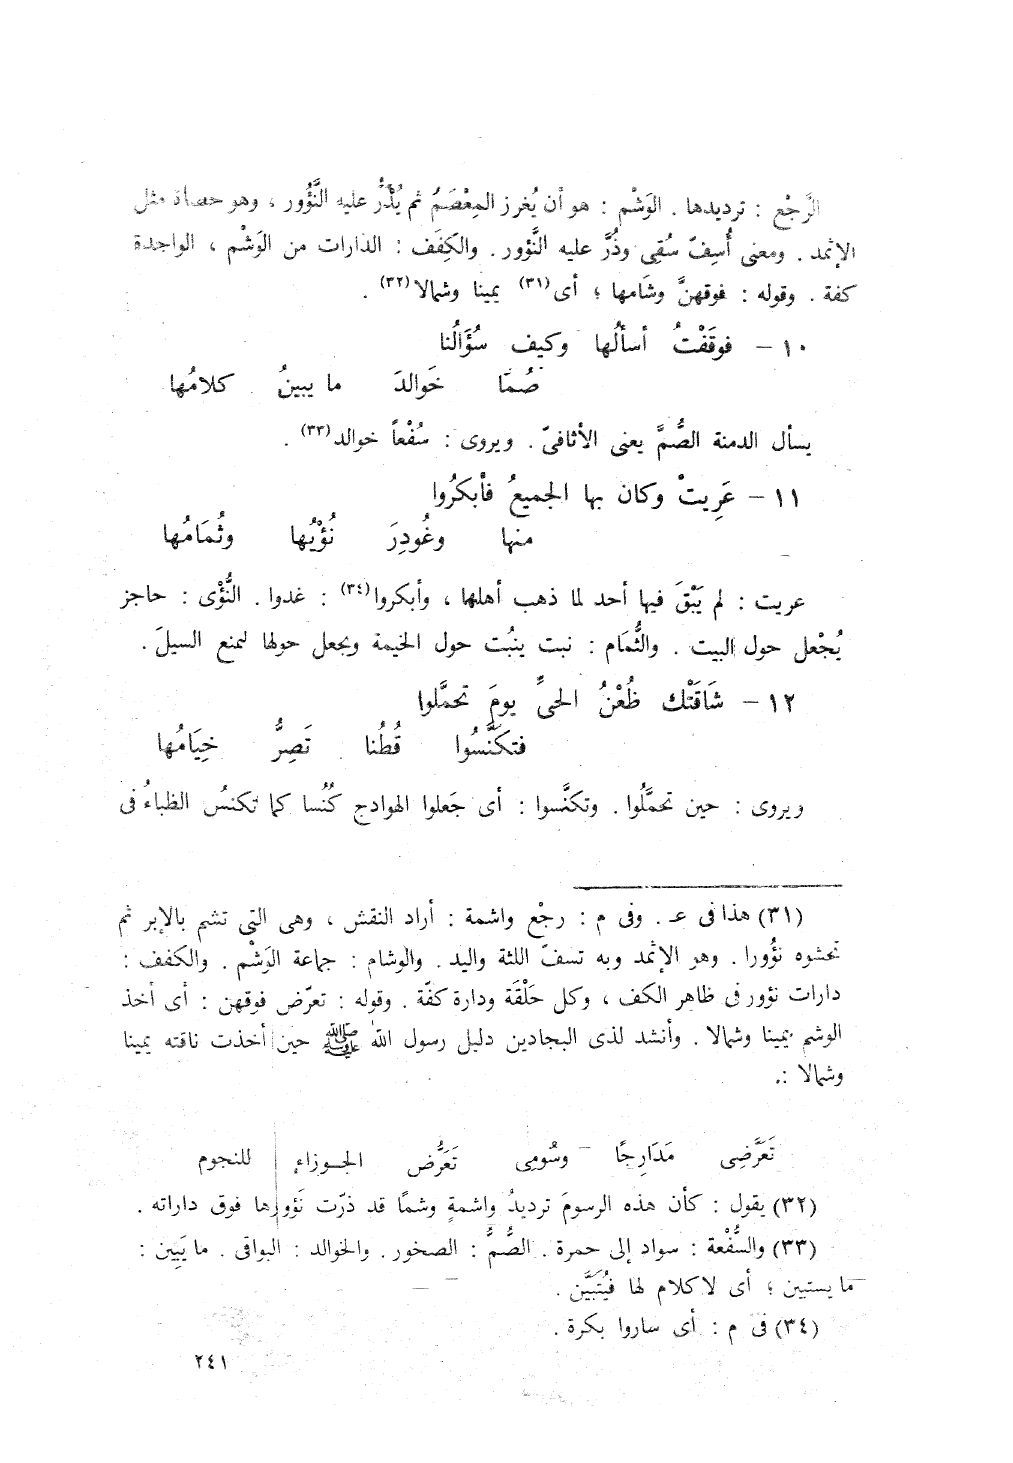 الرَّجْع : ترديدها . الوَشْم : هو أن يُغرز المِعْصَمُ ثم يُذَرُّ عليه النَّؤُور ، وهو حصاة مثل
الإثمد . ومعنى أُسِفّ سُقِى وذُرَّ عليه النَّؤور . والكِفَف : الدارات من الوَشْم ، الواحدة
كفة . وقوله : فوقهنَّ وشَامها ؛ أى (٣١) يمينا وشمالا (٣٢) .
١٠ – فوقَفْتُ أسألُها وكيف سُؤَالُنا
صُمًّا خَوالدَ ما يبينُ كلامُها
يسأل الدمنة الصُّمَّ يعنى الأثافىّ . ويروى : سُفْعاً خوالد (٣٣) .
١١ – عَرِيتْ وكان بها الجميعُ فأبكرُوا
منها وغُودِرَ نُؤْيُها وثُمَامُها
عريت : لم يَبْقَ فيها أحد لما ذهب أهلها ، وأبكروا (٣٤) : غدوا . النُّؤْى : حاجز
يُجْعل حول البيت . والثُّمَام : نبت ينبُت حول الخيمة ويجعل حولها ليمنع السيلَ .
١٢ – شَاقَتْك ظُعْنُ الحىِّ يومَ تحمَّلوا
فتكَنَّسُوا قُطُنا تَصِرُّ خِيَامُها
ويروى : حين تحمَّلُوا . وتكنَّسوا : أى جَعلوا الهوادج كُنُسا كما تكنسُ الظباءُ فى
(٣١) هذا فى عـ . وفى م : رجْع واشمة : أراد النقش ، وهى التى تشم بالإبر ثم
تحشوه نؤُورا . وهو الإثمد وبه تسفّ اللثة واليد . والوشام : جماعة الوَشْم . والكفف :
دارات نؤور فى ظاهر الكف ، وكل حَلْقَة ودارة كفّة . وقوله : تعرّض فوقهن : أى أخذ
الوشم يمينا وشمالا . وأنشد لذى البجادين دليل رسول الله ﷺ حين أخذت ناقته يمينا
وشمالا :
تَعَرَّضِى مَدَارِجًا وسُومِى تَعَرُّض الجـوزاء للنجوم
(٣٢) يقول : كأن هذه الرسومَ ترديدُ واشمةٍ وشمًا قد ذرّت نَؤورها فوق داراته .
(٣٣) والسُّفْعة : سواد إلى حمرة . الصُّمُّ : الصخور . والخوالد : البواقى . ما يَبِين :
ما يستبين ؛ أى لاكلام لها فيُتَبَيَّن .
(٣٤) فى م : أى ساروا بكرة .
٢٤١